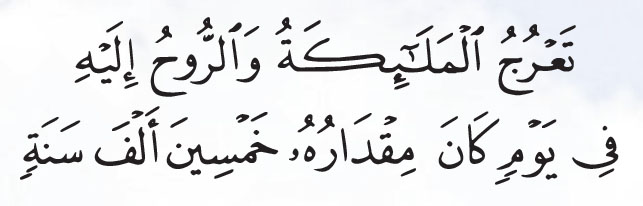 تَعْرُجُ ٱلْمَلَـٰٓئِكَةُ وَٱلرُّوحُ إِلَيْهِ
فِي يَوْمٍ كَانَ مِقْدَارُهُۥ خَمْسِينَ أَلْفَ سَنَةٍ